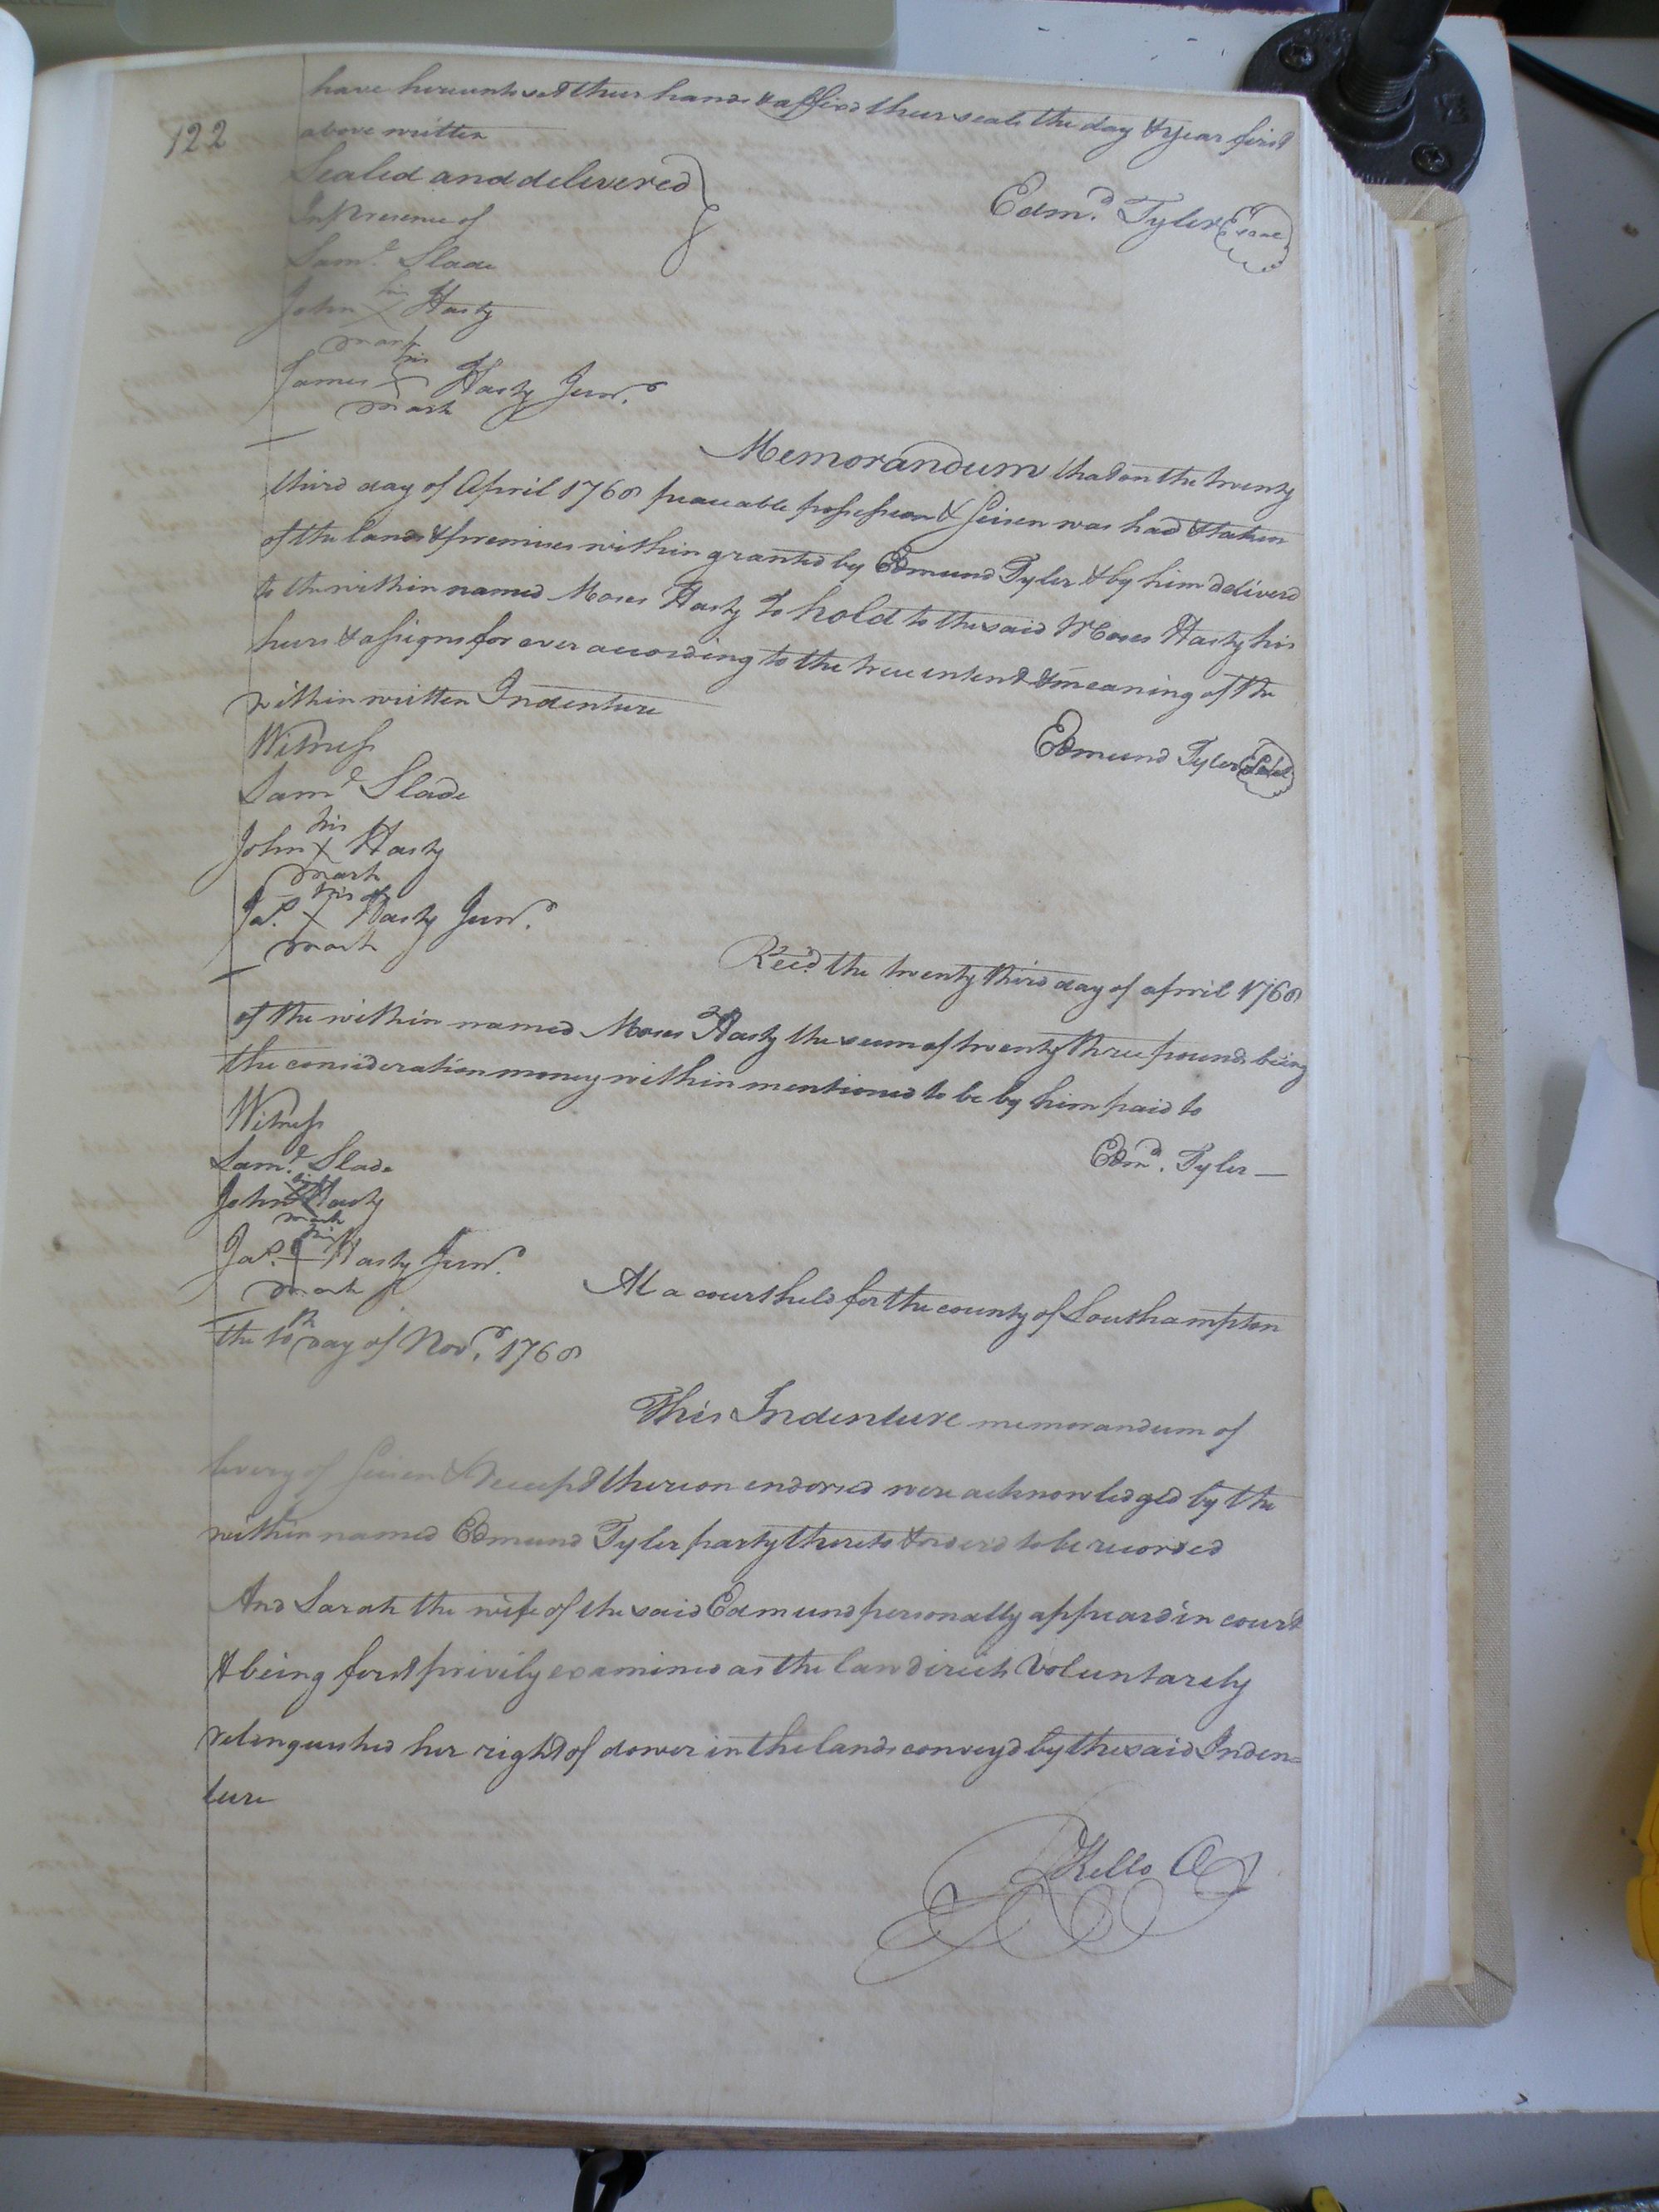 122
have hereunto set their hands & affixd their seals the day & year first
above written
Sealed and delivered
In Presence of
Edm.d Tyler Seal
Sam.l Slade
his
John X Hasty
mark
his
James X Hasty Junr.
mark
Memorandum that on the twenty
third day of April 1768 peaceable possession & Seisen was had & taken
of the lands & premises within granted by Edmund Tyler & by him deliverd
to the within named Moses Hasty To hold to the said Moses Hasty his
heirs & assigns for ever according to the true intent & meaning of the
within written Indenture
Witness
Edmund Tyler Seal
Sam.l Slade
his
John X Hasty
mark
his
Jas. X Hasty Junr.
mark
Rec'd the twenty third day of april 1768
of the within named Moses Hasty the sum of twenty three pounds being
the consideration money within mentioned to be by him paid to
Witness
Edm.d Tyler
Sam.l Slade
his
John X Hasty
mark
his
Jas. X Hasty Junr.
mark
At a court held for the county of Southampton
the 10th day of Novr. 1768
This Indenture memorandum of
livery of Seisen & Receipt thereon endorsed were acknowledged by the
within named Edmund Tyler party thereto & orderd to be recorded
And Sarah the wife of the said Edmund personally appeard in court
& being first privily examined as the law directs Voluntarely
relinquished her right of dower in the lands conveyd by the said Inden=
ture
Kello C